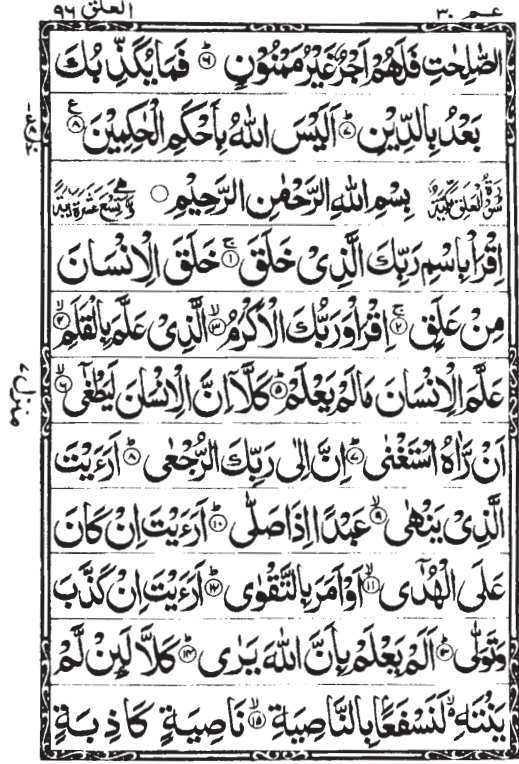 عم ٣٠
العلق ٩٦
الصّٰلِحٰتِ فَلَهُمْ اَجْرٌ غَیْرُ مَمْنُوْنٍ ؕ﴿۶﴾ فَمَا یُكَذِّبُكَ
بَعْدُ بِالدِّیْنِ ؕ﴿۷﴾ اَلَیْسَ اللّٰهُ بِاَحْكَمِ الْحٰكِمِیْنَ ﴿۸﴾ ع
سُوْرَةُ الْعَلَقِ مَكِّیَّةٌ بِسْمِ اللّٰهِ الرَّحْمٰنِ الرَّحِیْمِ وَّهِیَ تِسْعَ عَشْرَةَ اٰیَةً
اِقْرَاْ بِاسْمِ رَبِّكَ الَّذِیْ خَلَقَ ۚ﴿۱﴾ خَلَقَ الْاِنْسَانَ
مِنْ عَلَقٍ ۚ﴿۲﴾ اِقْرَاْ وَ رَبُّكَ الْاَكْرَمُ ۙ﴿۳﴾ الَّذِیْ عَلَّمَ بِالْقَلَمِ ۙ﴿۴﴾
عَلَّمَ الْاِنْسَانَ مَا لَمْ یَعْلَمْ ؕ﴿۵﴾ كَلَّاۤ اِنَّ الْاِنْسَانَ لَیَطْغٰۤی ۙ﴿۶﴾
اَنْ رَّاٰهُ اسْتَغْنٰی ؕ﴿۷﴾ اِنَّ اِلٰی رَبِّكَ الرُّجْعٰی ؕ﴿۸﴾ اَرَءَیْتَ
الَّذِیْ یَنْهٰی ۙ﴿۹﴾ عَبْدًا اِذَا صَلّٰی ؕ﴿۱۰﴾ اَرَءَیْتَ اِنْ كَانَ
عَلَی الْهُدٰۤی ۙ﴿۱۱﴾ اَوْ اَمَرَ بِالتَّقْوٰی ؕ﴿۱۲﴾ اَرَءَیْتَ اِنْ كَذَّبَ
وَ تَوَلّٰی ؕ﴿۱۳﴾ اَلَمْ یَعْلَمْ بِاَنَّ اللّٰهَ یَرٰی ؕ﴿۱۴﴾ كَلَّا لَىِٕنْ لَّمْ
یَنْتَهِ ۙ۬ لَنَسْفَعًۢا بِالنَّاصِیَةِ ۙ﴿۱۵﴾ نَاصِیَةٍ كَاذِبَةٍ
منزل ٧